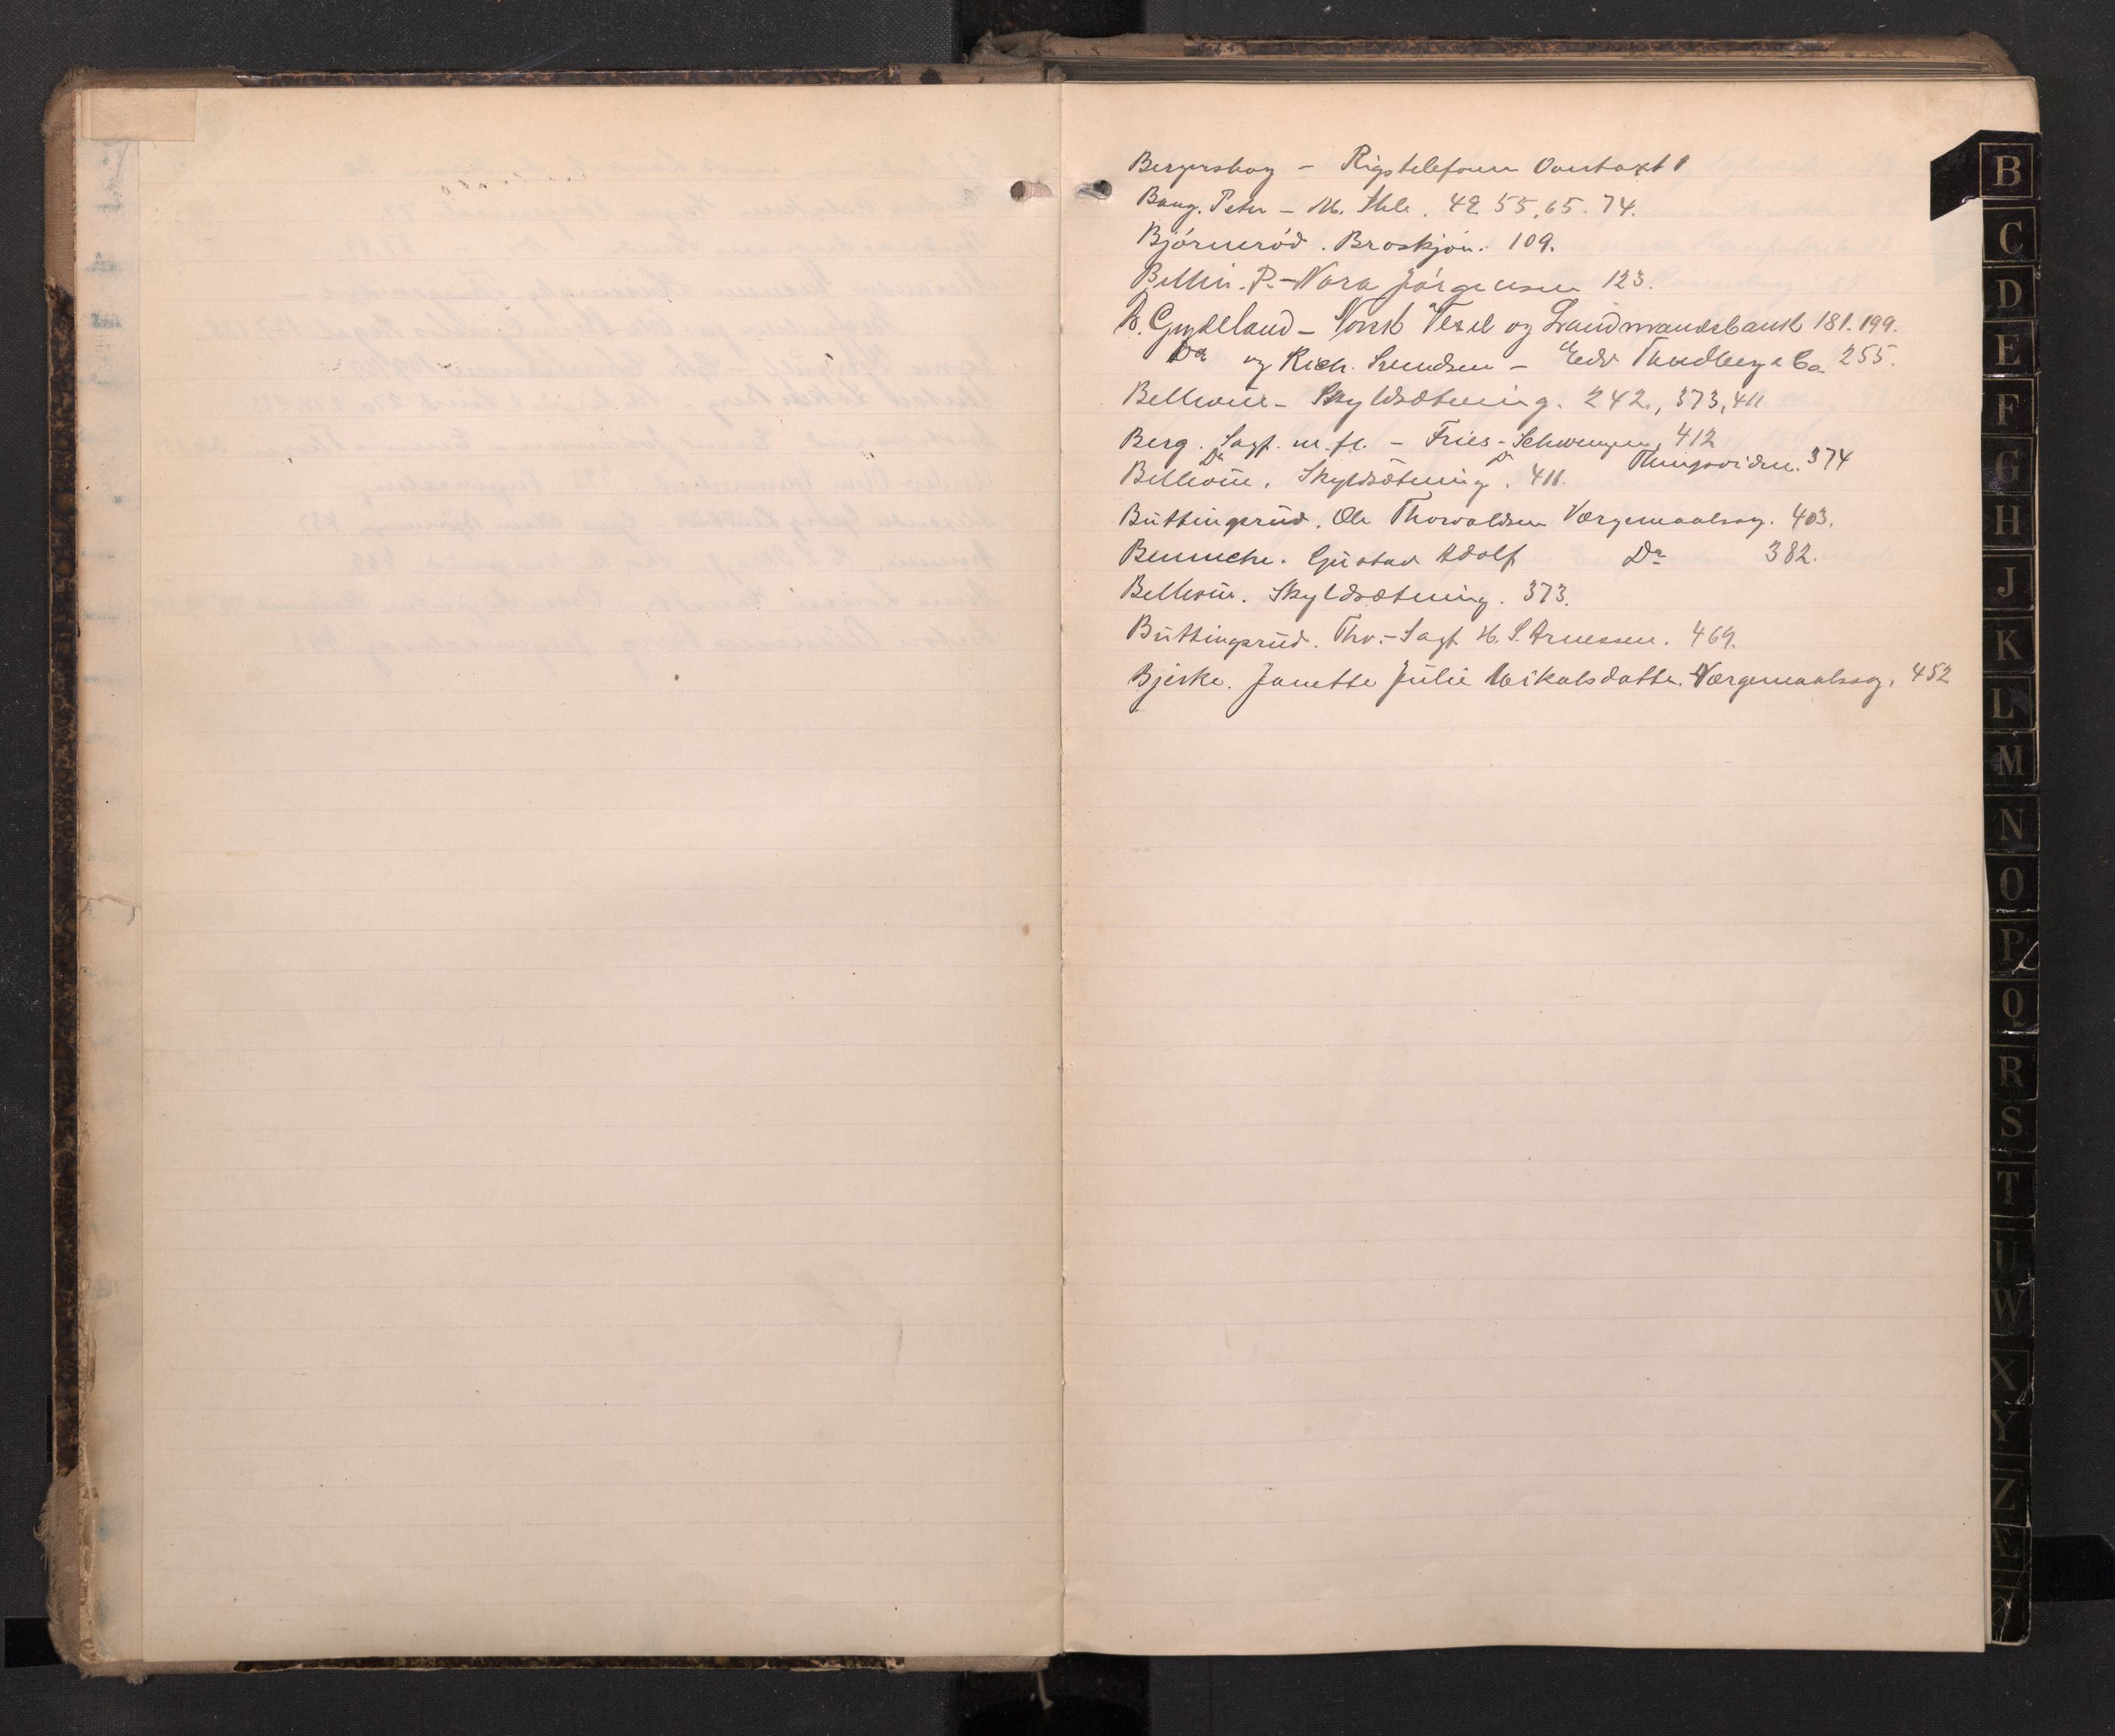 Bergershag – Rigstelefonen Overtaxt 1
Bang. Peter – M. Ihle. 42 55, 65. 74.
Björneröd. Broskjøn. 109.
P. – Nora Jörgensen 123.
B. Gundelland – Norsk Vexel og Landmandsbank 181. 199.
Do og Rich. Svendsen – Edv Thudberg & Co. 255.
Bellevue – Skyldsætning. 242, 373, 411
Berg. Sagf. m. fl. – Fries-Schwenzen, 412
Do Do Thingsviden. 374
Bellevue. Skyldsætning. 411.
Büttingsrüd. Ole Thorvaldsen Værgemaalssag. 403.
Benneche. Güstav Adolf Do 382.
Bellevüe. Skyldsætning. 373.
Büttingsrüd. Thv. – Sagf. H. S. Arnessen. 469.
Bjerke. Janette Jülie Mikalsdatter. Værgemaalssag. 452
B
C
D
E
F
G
H
J
K
L
M
N
O
P
Q
R
S
T
U
W
X
Y
Z
Æ